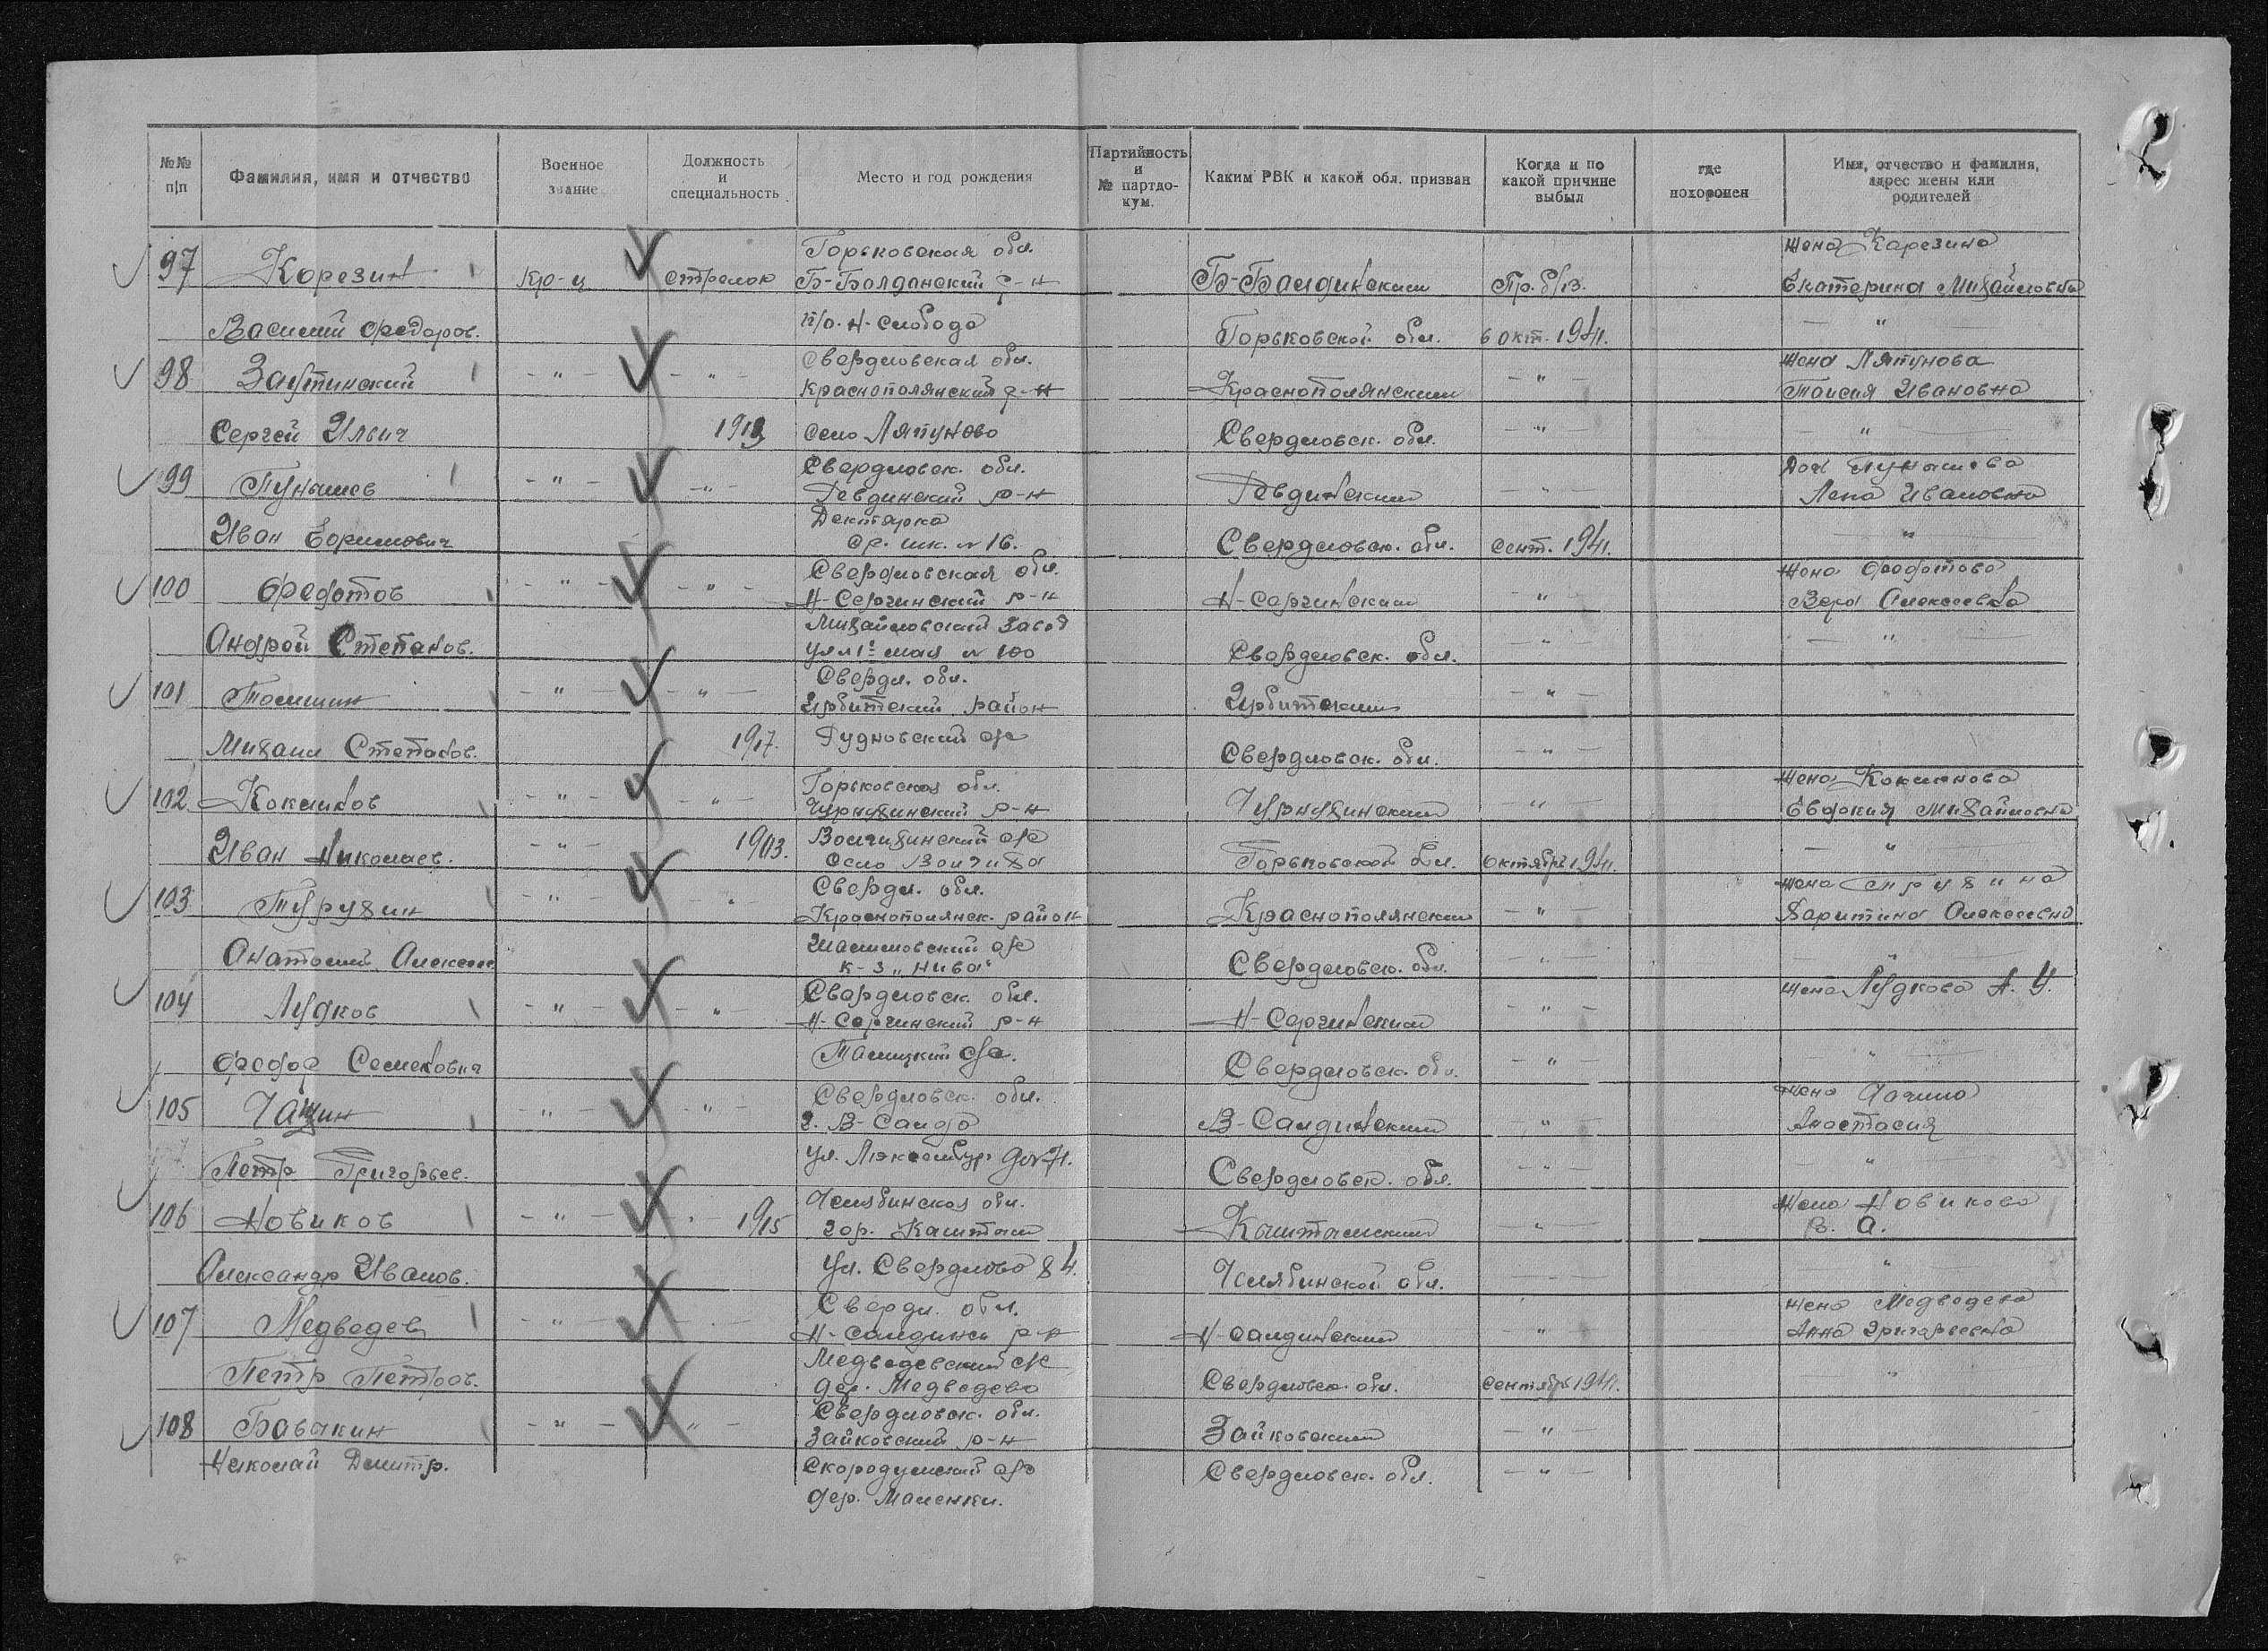 №№ п/п Фамилия, имя и отчество Военное звание Должность и специальность Место и год рождения Партийность и № партдокум. Каким РВК и какой обл. призван Когда и по какой причине выбыл где похоронен Имя, отчество и фамилия, адрес жены или родителей
Горьковская обл. жена Карезина
97 Корезин кр-ц стрелок Б-Болданский р-н Б-Балдинским Пр. б/в. Екатерина Михайловна
Василий Федоров. п/о. Н-Слобода Горьковской обл. 6 окт. 1941. — " —
Свердловская обл. жена Ляпунова
98 Заутинский - " - - " - Краснополянский р-н Краснополянским - " - Таисия Ивановна
Сергей Ильич 1913 село Ляпуново Свердловск. обл. - " - — " —
Свердловск. обл.
99 Пунышев - " - - " - Ревдинский р-н Ревдинским - " - Лена Ивановна
Дектярка
Иван Ворилович ср. шк. № 16. Свердловск. обл. сент. 1941. — " —
Свердловская обл. жена Федотова
100 Федотов - " - - " - Н-Сергинский р-н Н-Сергинским - " - Вера Алексеевна
Михайловский завод
Андрей Степанов. ул 1е мая № 100 Свердловск. обл. - " - — " —
Свердл. обл.
101 Томшин - " - - " - Ирбитский район Ирбитским - " - "
Михаил Степанов. 1917. Рудновский с/с Свердловск. обл. - " -
Горьковская обл. жена Кокшнова
102 Кокшнов - " - - " - Чернухинский р-н Чернухинским - " - Евдокия Михайловна
Волчихинский с/с
Иван Николаев. - " - 1903. село Волчиха Горьковской обл. октябрь 1941. — " —
Свердл. обл. жена
103 Турухин - " - - " - Краснополянск. район Краснополянским - " - Харитина Алексеевна
Шалимовский с/с
Анатолий Алексеев к-з „Нива" Свердловск. обл. - " - "
Свердловск. обл. жена Лудкова А. У.
104 Лудков - " - - " - Н-Сергинский р-н Н-Сергинским - " -
Федор Семенович Талицкий с/с. Свердловск. обл. - " - — " —
Свердловск. обл. жена
105 Чащин - " - - " - г. В-Салда В-Салдинским - " - Анастасия
Петр Григорьев. ул. Люксембург Свердловск. обл. - " - — " —
Челябинская обл. жена Новикова
106 Новиков - " - - 1915 гор. Каштам Каштамским - " - В. А.
Александр Иванов. ул. Свердлова 84. Челябинской обл. "
Свердл. обл. жена Медведева
107 Медведев - " - - " - Н-Салдинск р-н Н-Салдинским - " - Анна Григорьевна
Медведевский с/с
Петр Петров. дер. Медведево Свердловск. обл. сентябрь 1941. "
Свердловск. обл.
108 Бабыкин - " - - " - Зайковский р-н Зайковским - " -
Николай Дмитр. Скородумский с/с Свердловск. обл. - " -
дер. Маленки.